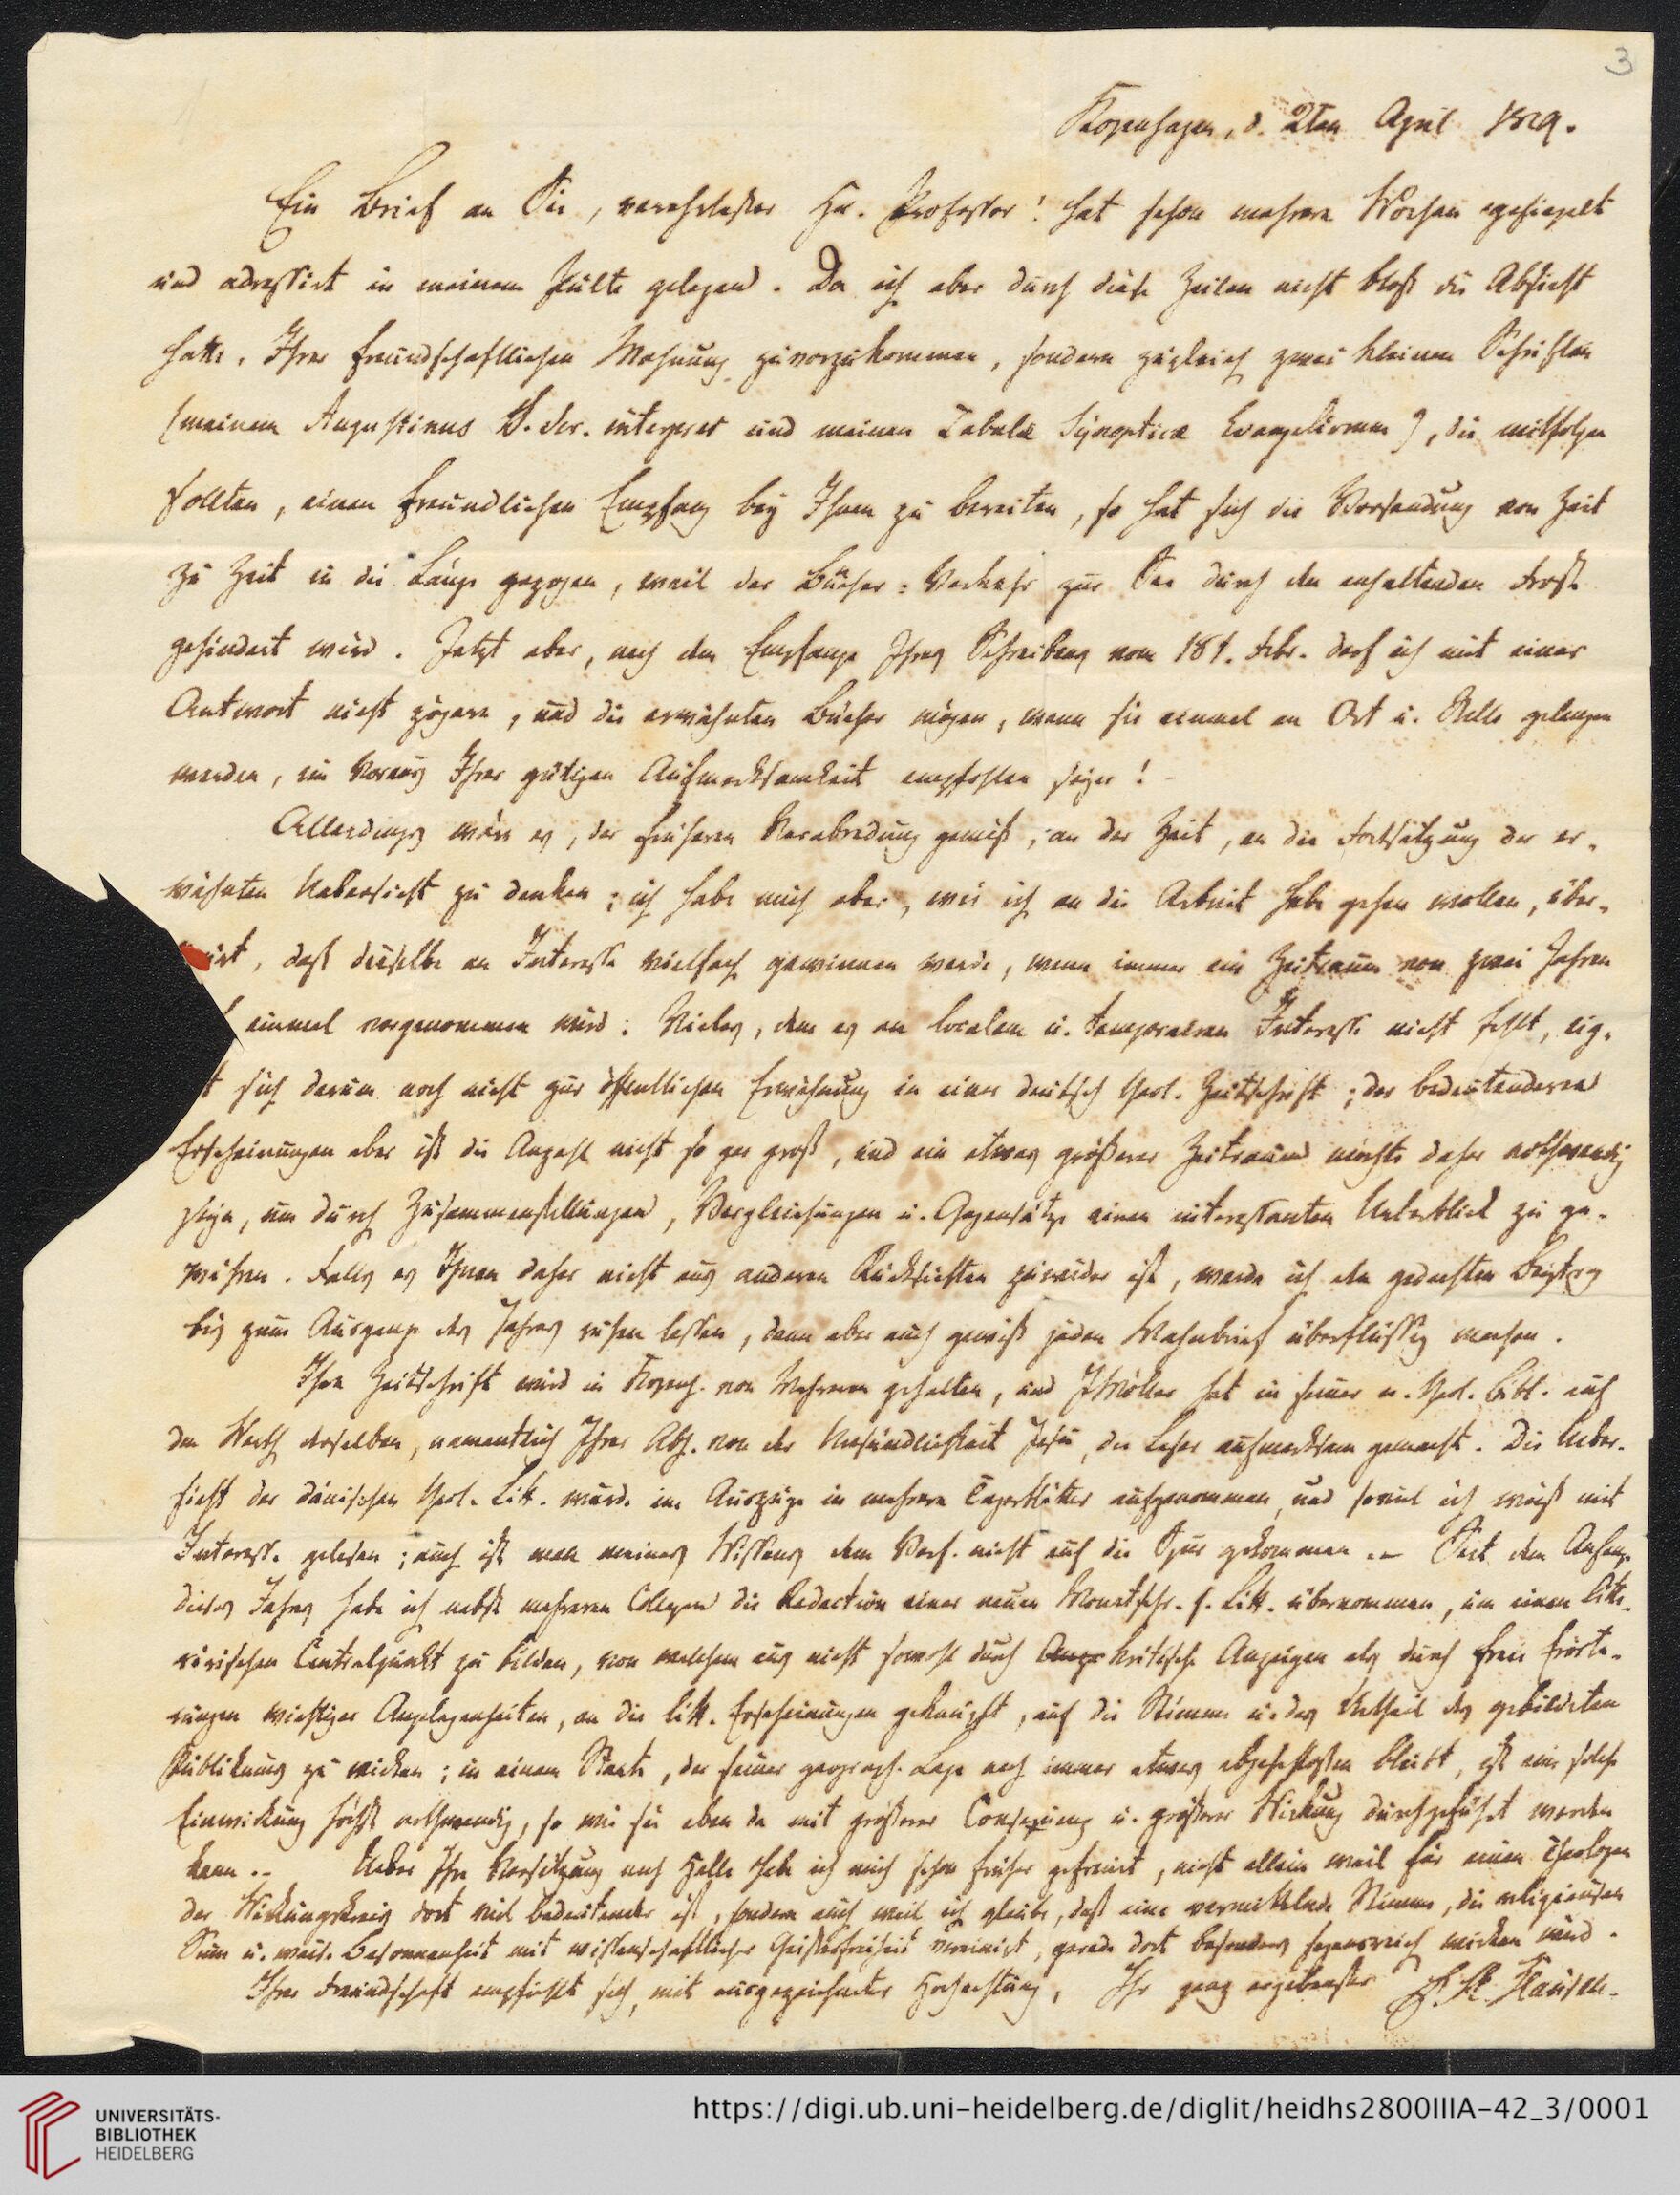 3
Kopenhagen, d. 2ten April 1829.
Ein Brief an Sie, verehrtester Hr. Professor! hat schon mehrere Wochen gesiegelt
und adressirt in meinem Pulte gelegen. Da ich aber durch diese Zeilen nicht bloß die Absicht
hatte, Ihrer freundschaftlichen Mahnung zuvorzukommen, sondern zugleich zwei kleinen Schriften
(meinem Augustinus S. Scr. interpres und meinen Tabulæ Synopticæ Evangeliorum), die mitfolgen
sollten, einen freundlichen Empfang bey Ihnen zu bereiten, so hat sich die Versendung von Zeit
zu Zeit in die Länge gezogen, weil der Bücher-Verkehr zur See durch den anhaltenden Frost
gehindert wird. Jetzt aber, nach dem Empfange Ihres Schreibens vom 18t. Febr. darf ich mit einer
Antwort nicht zögern, und die erwähnten Bücher mögen, wenn sie einmal an Ort u. Stelle gelangen
werden, im Voraus Ihrer gütigen Aufmerksamkeit empfohlen seyn!
Allerdings wäre es, der früheren Verabredung gemäß, an der Zeit, an die Fortsetzung der er-
wähnten Uebersicht zu denken; ich habe mich aber, wie ich an die Arbeit habe gehen wollen, über-
, daß dieselbe an Interesse vielfach gewinnen werde, wenn immer ein Zeitraum von zwei Jahren
einmal vorgenommen wird. Vieles, dem es an localem u. temporairem Interesse nicht fehlt, eig-
t sich darum noch nicht zur öffentlichen Erwähnung in einer deutsch theol. Zeitschrift; der bedeutenderen
Erscheinungen aber ist die Anzahl nicht so gar groß, und ein etwas größerer Zeitraum möchte daher nothwendig
seyn, um durch Zusammenstellungen, Vergleichungen u. Gegensätze einen interessanten Ueberblick zu ge-
währen. Falls es Ihnen daher nicht aus anderen Rücksichten zuwider ist, werde ich den gedachten Beytrag
bis zum Ausgange des Jahres ruhen lassen, dann aber auch gewiß jeden Mahnbrief überflüssig machen.
Ihre Zeitschrift wird in Kopenh. von Mehreren gehalten, und J Möller hat in seiner n. theol. Bibl. auf
den Werth derselben, namentlich Ihrer Abh. von der Unsündlichkeit Jesu, die Leser aufmerksam gemacht. Die Ueber-
sicht der dänischen theol. Litt. wurde im Auszuge in mehrere Tageblätter aufgenommen, und soviel ich weiß mit
Interesse gelesen; auch ist man meines Wissens dem Verf. nicht auf die Spur gekommen. – Seit dem Anfange
dieses Jahres habe ich nebst mehreren Collegen die Redaction einer neuen Monatschr. f. Litt. übernommen, um einen litte-
rärischen Centralpunkt zu bilden, von welchem aus nicht sowohl durch kritische Anzeigen als durch freie Erörte-
rungen wichtiger Angelegenheiten, an die litt. Erscheinungen geknüpft, auf die Stimme u. das Urtheil des gebildeten
Publikums zu wirken; in einem Staate, der seiner geograph. Lage nach immer etwas abgeschlossen bleibt, ist eine solche
Einwirkung höchst nothwendig, so wie sie eben da mit größerer Consequenz u. größerer Wirkung durchgeführt werden
kann. – Ueber Ihre Versetzung nach Halle habe ich mich schon früher gefreut, nicht allein weil für einen Theologen
der Wirkungskreis dort viel bedeutender ist, sondern auch weil ich glaube, daß eine vermittelnde Stimme, die religieusen
Sinn u. weise Besonnenheit mit wissenschaftlicher Geistesfreiheit vereinigt, gerade dort besonders segensreich wirken wird.
Ihrer Freundschaft empfiehlt sich, mit ausgezeichneter Hochachtung, Ihr ganz ergebenster H. N. Klausen.
UNIVERSITÄTS-
BIBLIOTHEK
HEIDELBERG
https://digi.ub.uni-heidelberg.de/diglit/heidhs2800IIIA-42_3/0001